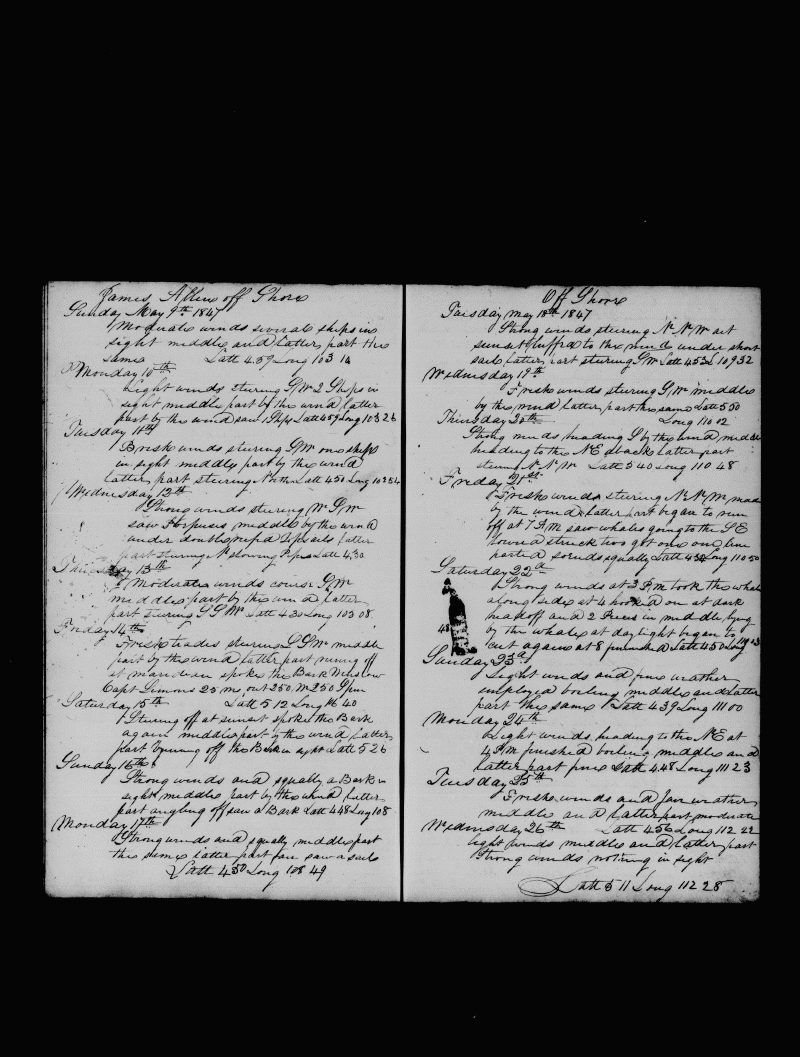 James Allen off Shore
Sunday May 9th 1847
Moderate winds several ships in
sight middle and latter part the
same Latt 4.39 Long 103 14
Monday 10th
Light winds stering S/W 2 Ships in
sight middle part by the wind latter
part by the wind saw 1 Ship Latt 4 59 Long 103 26
Tuesday 11th
Brisk winds stering S/W one ship
in sight middle part by the wind
latter part stearing North Latt 4.50 Long 102 54
Wednesday 12th
Strong winds stering W S/W
saw Porpuses middle by the wind
under double reefd topsails latter
part stearing N Latt 4.30
Thursday 13th
Moderate winds course S/W
middle part by the wind latter
part stering S S W Latt 4 30 Long 103 08
Friday 14th
Fresh trades stering S S W middle
part by the wind latter part runing off
at meridean spoke the Bark Winslow
Capt Simons 25 ms out 250 W 250 Spm
Saturday 15th Latt 5 12 Long 16 40
Stering off at sunset spoke the Bark
again middle part by the wind Latter
part runing off the Bark in sight Latt 5 26
Sunday 16th
Strong winds and squally a Bark in
sight middle part by the wind latter
part angling off saw a Bark Latt 4 48 Long 108
Monday 17th
Strong winds and squally middle part
the same Latter part fair saw a sail
Latt 4 50 Long 108 49
Off Shore
Tuesday may 18th 1847
Strong winds stering N N W at
sunset luffed to the wind under short
sail latter part stering S/W Latt 4 53 L 109 32
Wednesday 19th
Fresh winds stering S/W middle
by the wind latter part the same Latt 5 50
Thursday 20th Long 110 2
Strong winds heading S by the wind middle
heading to the NE tacks latter part
stering N N W Latt 5 40 Long 110 48
Friday 21st
Fresh winds stering N N W mad
by the wind latter part began to run
off at 7 A M saw whales going to the S E
lowerd struck two got one one line
parted sounds squally Latt 4 38 Long 110 50
Saturday 22d
Strong winds at 3 P M took the whale
along side at 4 hooked on at dark
headoff and 2 Pieces in middle lying
by the whale at daylight began to
cut again at 8 finished Latt 4 50 Long 110 23
48
Sunday 23d
Light winds and fine weather
employed boiling middle and latter
part the same Latt 4 39 Long 111 00
Monday 24th
Light winds heading to the N E at
4 P M finished boiling middle and
latter part fine Latt 4.48 Long 111 23
Tuesday 25th
Fresh winds and fair weather
middle and latter part moderate
Wednesday 26th Latt 4 56 Long 112 22
light winds middle and latter part
Strong winds nothing in sight
Latt 5 11 Long 112 28